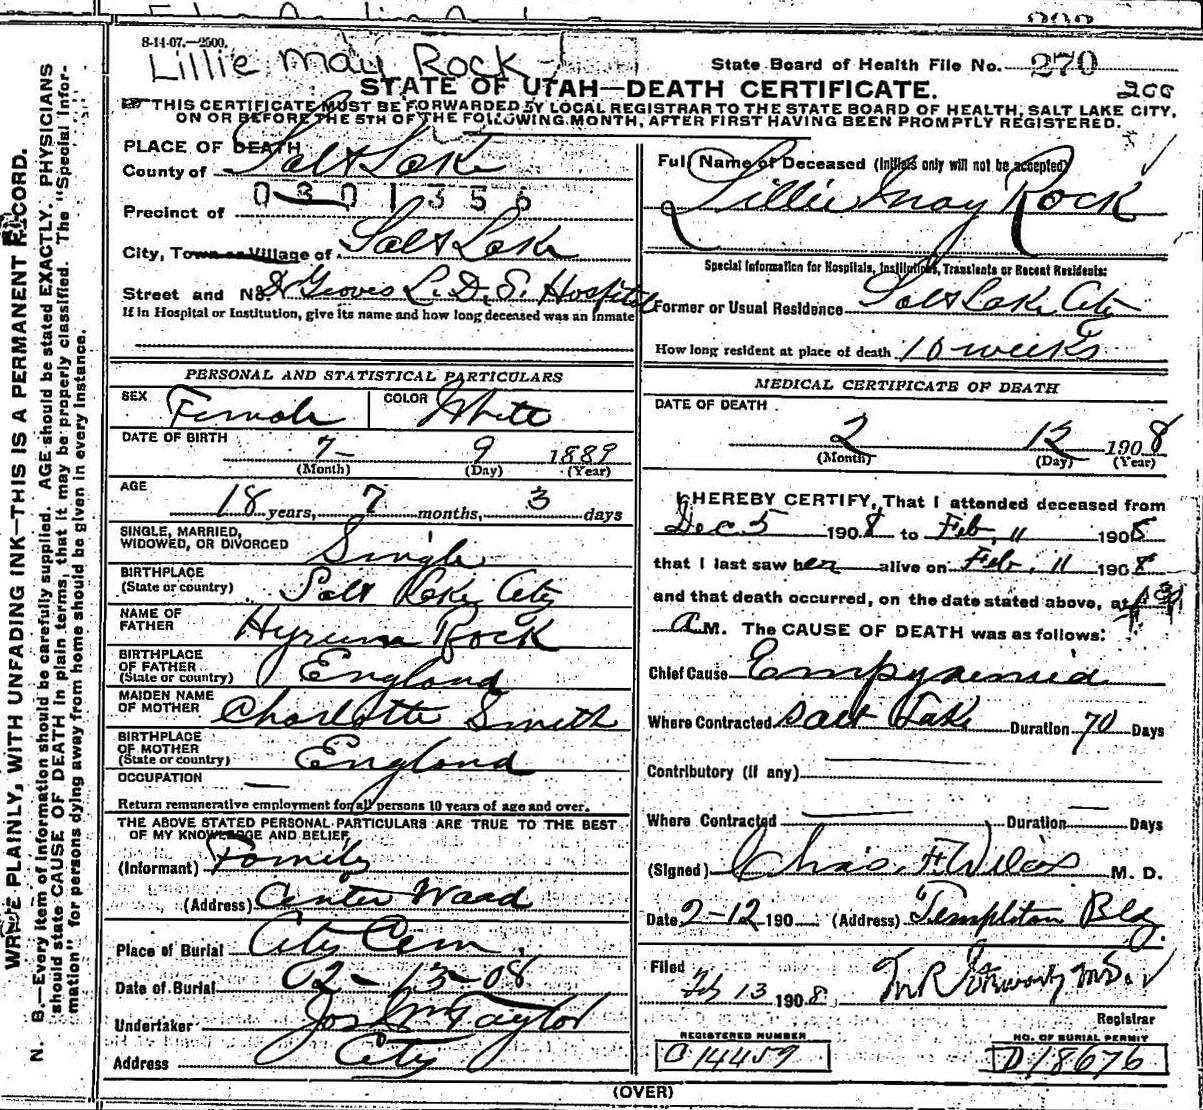 8-14-07.—2500.
Lillie May Rock
State Board of Health File No. 270
STATE OF UTAH—DEATH CERTIFICATE. 200
THIS CERTIFICATE MUST BE FORWARDED BY LOCAL REGISTRAR TO THE STATE BOARD OF HEALTH, SALT LAKE CITY,
ON OR BEFORE THE 5TH OF THE FOLLOWING MONTH, AFTER FIRST HAVING BEEN PROMPTLY REGISTERED.
WRITE PLAINLY, WITH UNFADING INK—THIS IS A PERMANENT RECORD.
N. B.—Every item of information should be carefully supplied. AGE should be stated EXACTLY. PHYSICIANS
should state CAUSE OF DEATH in plain terms, that it may be properly classified. The "Special Infor-
mation" for persons dying away from home should be given in every instance.
PLACE OF DEATH
County of Salt Lake
0301356
Precinct of
City, Town or Village of Salt Lake
Street and No. Groves L.D.S. Hospital
If in Hospital or Institution, give its name and how long deceased was an inmate
PERSONAL AND STATISTICAL PARTICULARS
SEX Female COLOR White
DATE OF BIRTH 7 9 1889
(Month) (Day) (Year)
AGE
18 years, 7 months, 3 days
SINGLE, MARRIED,
WIDOWED, OR DIVORCED Single
BIRTHPLACE
(State or country) Salt Lake City
NAME OF
FATHER Hyrum Rock
BIRTHPLACE
OF FATHER
(State or country) England
MAIDEN NAME
OF MOTHER Charlotte Smith
BIRTHPLACE
OF MOTHER
(State or country) England
OCCUPATION —
Return remunerative employment for all persons 10 years of age and over.
THE ABOVE STATED PERSONAL PARTICULARS ARE TRUE TO THE BEST
OF MY KNOWLEDGE AND BELIEF
(Informant) Family
(Address) Center Ward
Place of Burial City Cem.
Date of Burial 02-13-08
Undertaker Jos Wm Taylor
Address City
Full Name of Deceased (Initials only will not be accepted)
Lillie May Rock
Special Information for Hospitals, Institutions, Transients or Recent Residents:
Former or Usual Residence Salt Lake City
How long resident at place of death 10 weeks
MEDICAL CERTIFICATE OF DEATH
DATE OF DEATH
2 12 1908
(Month) (Day) (Year)
I HEREBY CERTIFY, That I attended deceased from
Dec 5 1908 to Feb, 11 1908
that I last saw her alive on Feb, 11 1908
and that death occurred, on the date stated above, at
A M. The CAUSE OF DEATH was as follows:
Chief Cause Empyaemia
Where Contracted Salt Lake Duration 70 Days
Contributory (if any) —
Where Contracted — Duration — Days
(Signed) Chas. F. Wilcox M. D.
Date 2-12 190 (Address) Templeton Bldg.
Filed
Feb 13 1908
Registrar
REGISTERED NUMBER
C 14459
NO. OF BURIAL PERMIT
D 18676
(OVER)